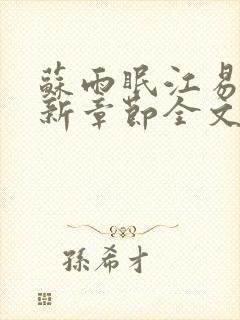 蘇雨眠江易
新章節全文
孫希才